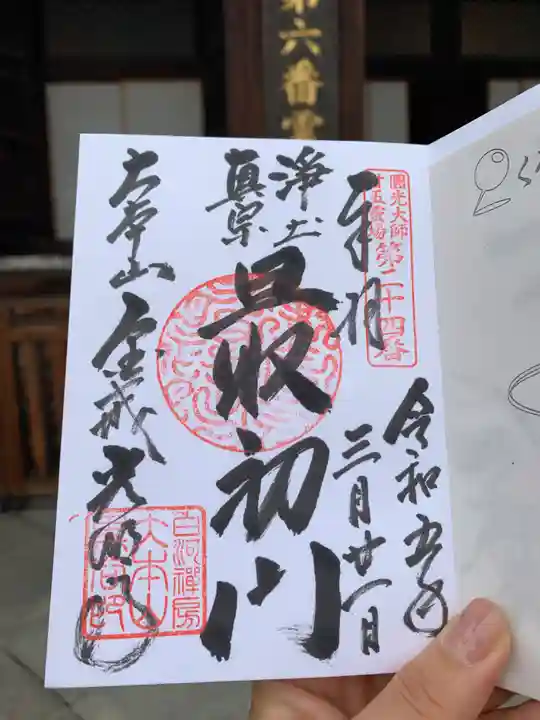 第六番霊
圓光大師
廿五霊場
第二十四番
奉拝
令和五年
三月廿一日
浄土
真宗
最初門
大本山 金戒光明寺
白河禪房
大本山